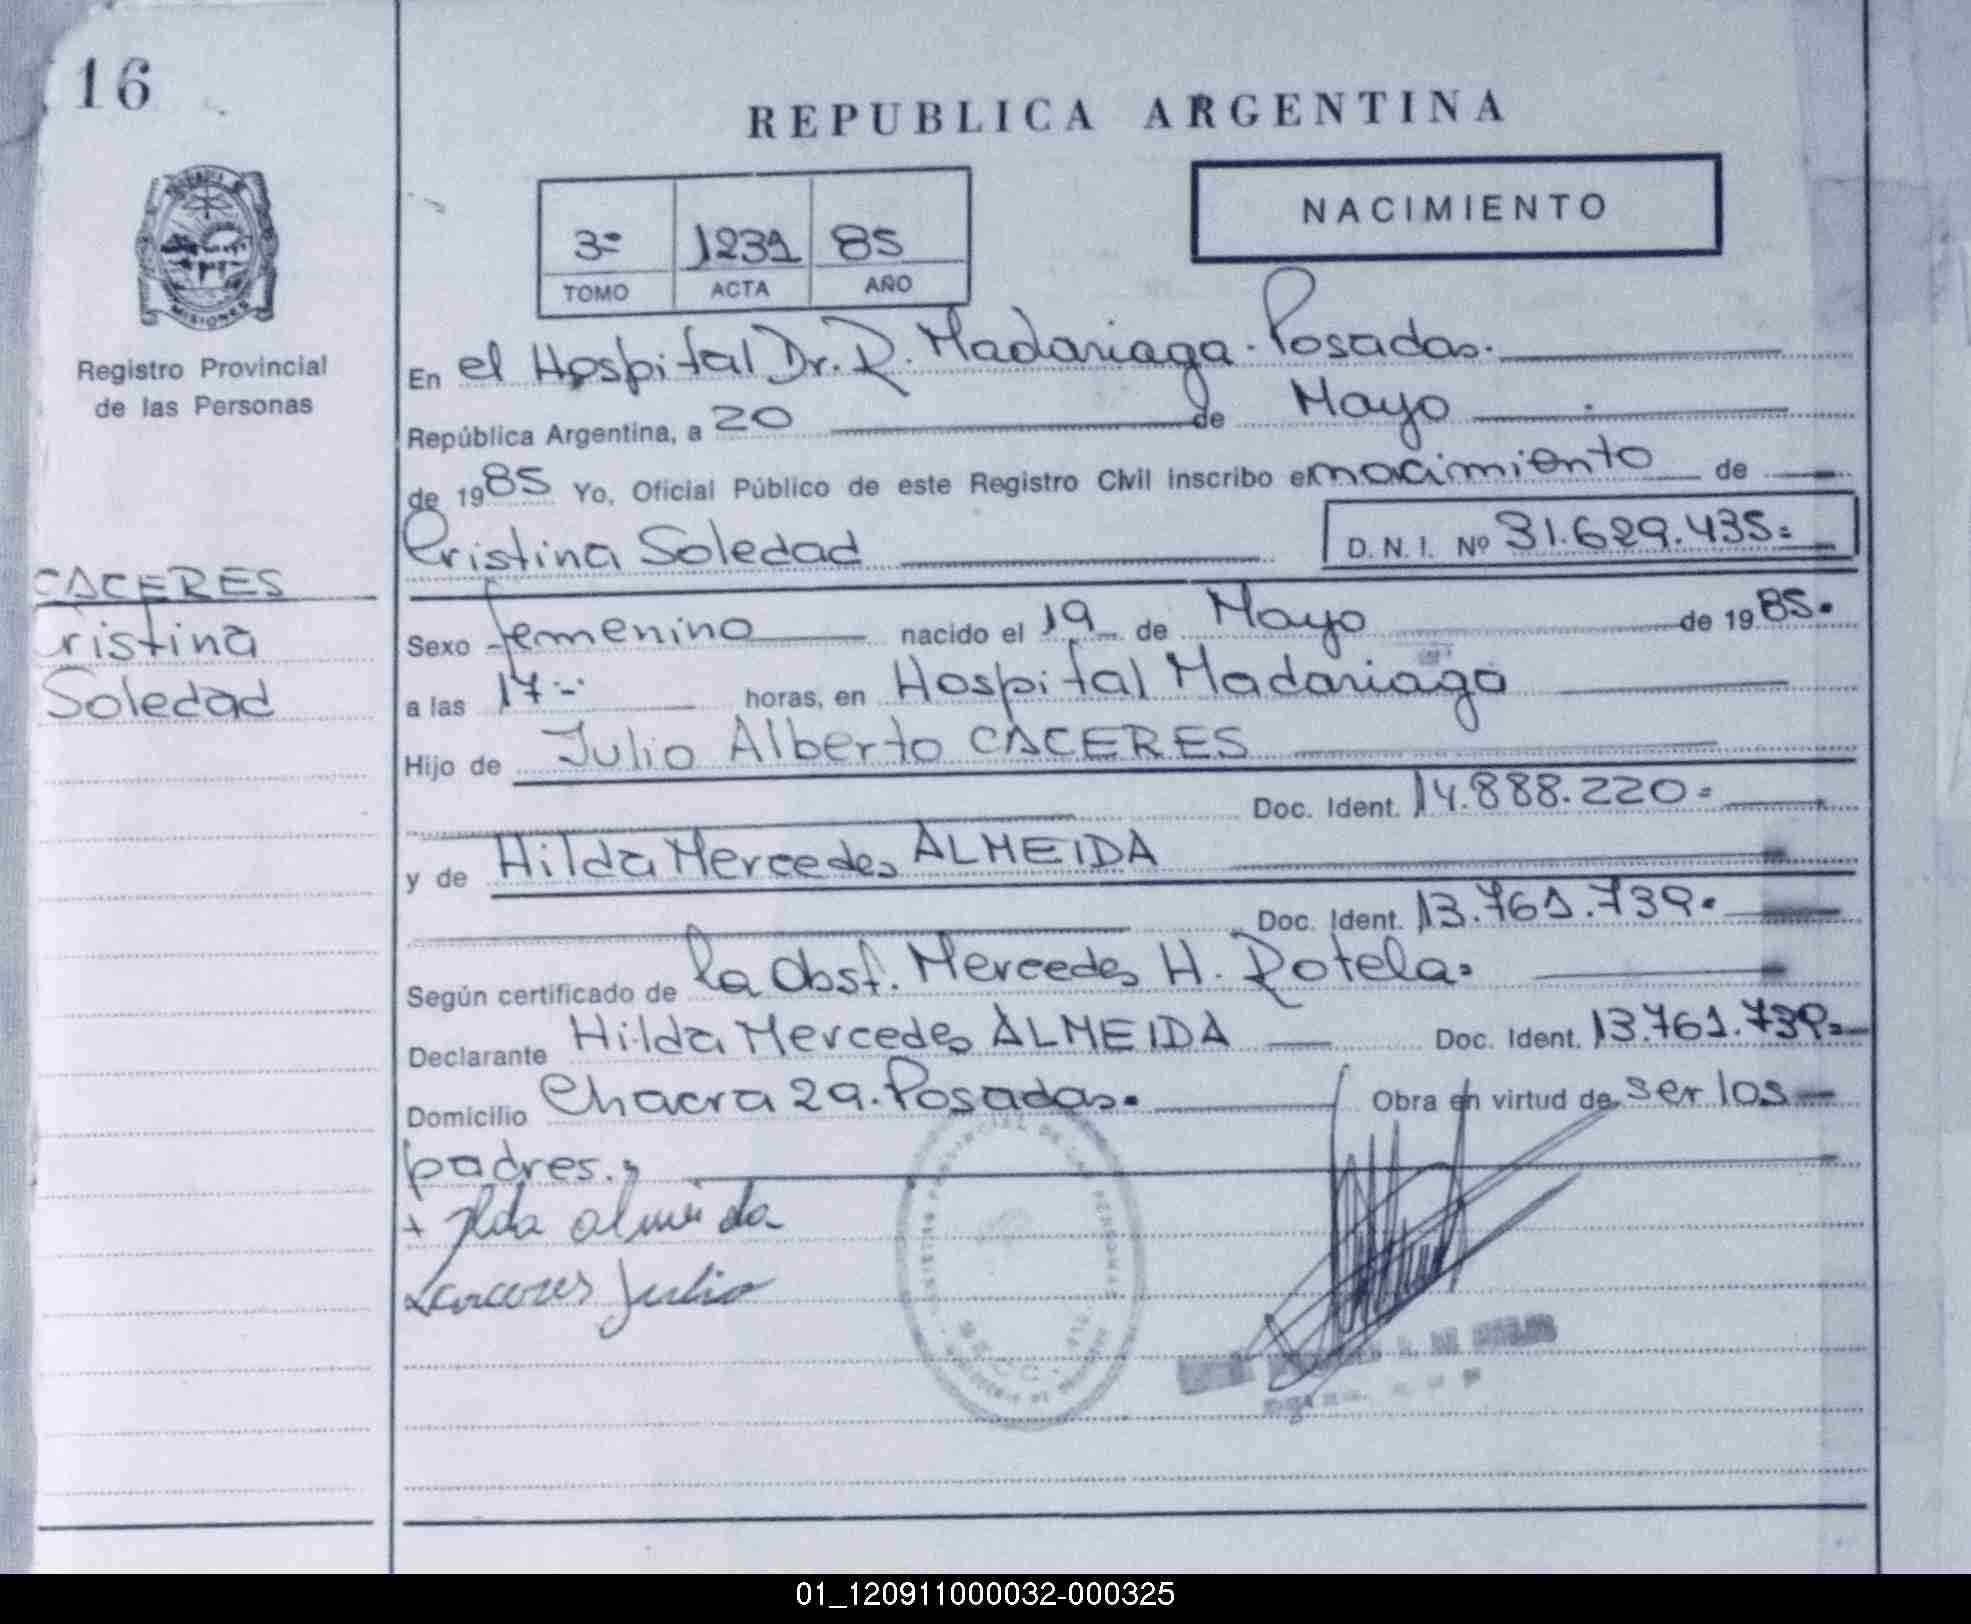 16
REPUBLICA ARGENTINA
NACIMIENTO
3º 1231 85
TOMO ACTA AÑO
MISIONES
Registro Provincial
de las Personas
CACERES
Cristina
Soledad
En el Hospital Dr. R. Madariaga. Posadas.
República Argentina, a 20 de Mayo
de 1985 Yo, Oficial Público de este Registro Civil inscribo el nacimiento de
Cristina Soledad D.N.I. Nº 31.629.435=
Sexo femenino nacido el 19 de Mayo de 1985.
a las 17 horas, en Hospital Madariaga
Hijo de Julio Alberto CACERES
Doc. Ident. 14.888.220=
y de Hilda Mercedes ALMEIDA
Doc. Ident. 13.761.739.
Según certificado de la Obst. Mercedes H. Rotela.
Declarante Hilda Mercedes ALMEIDA Doc. Ident. 13.761.739=
Domicilio Chacra 29. Posadas. Obra en virtud de ser los
padres.
+ Ilda almeida
Caceres Julio
01_120911000032-000325